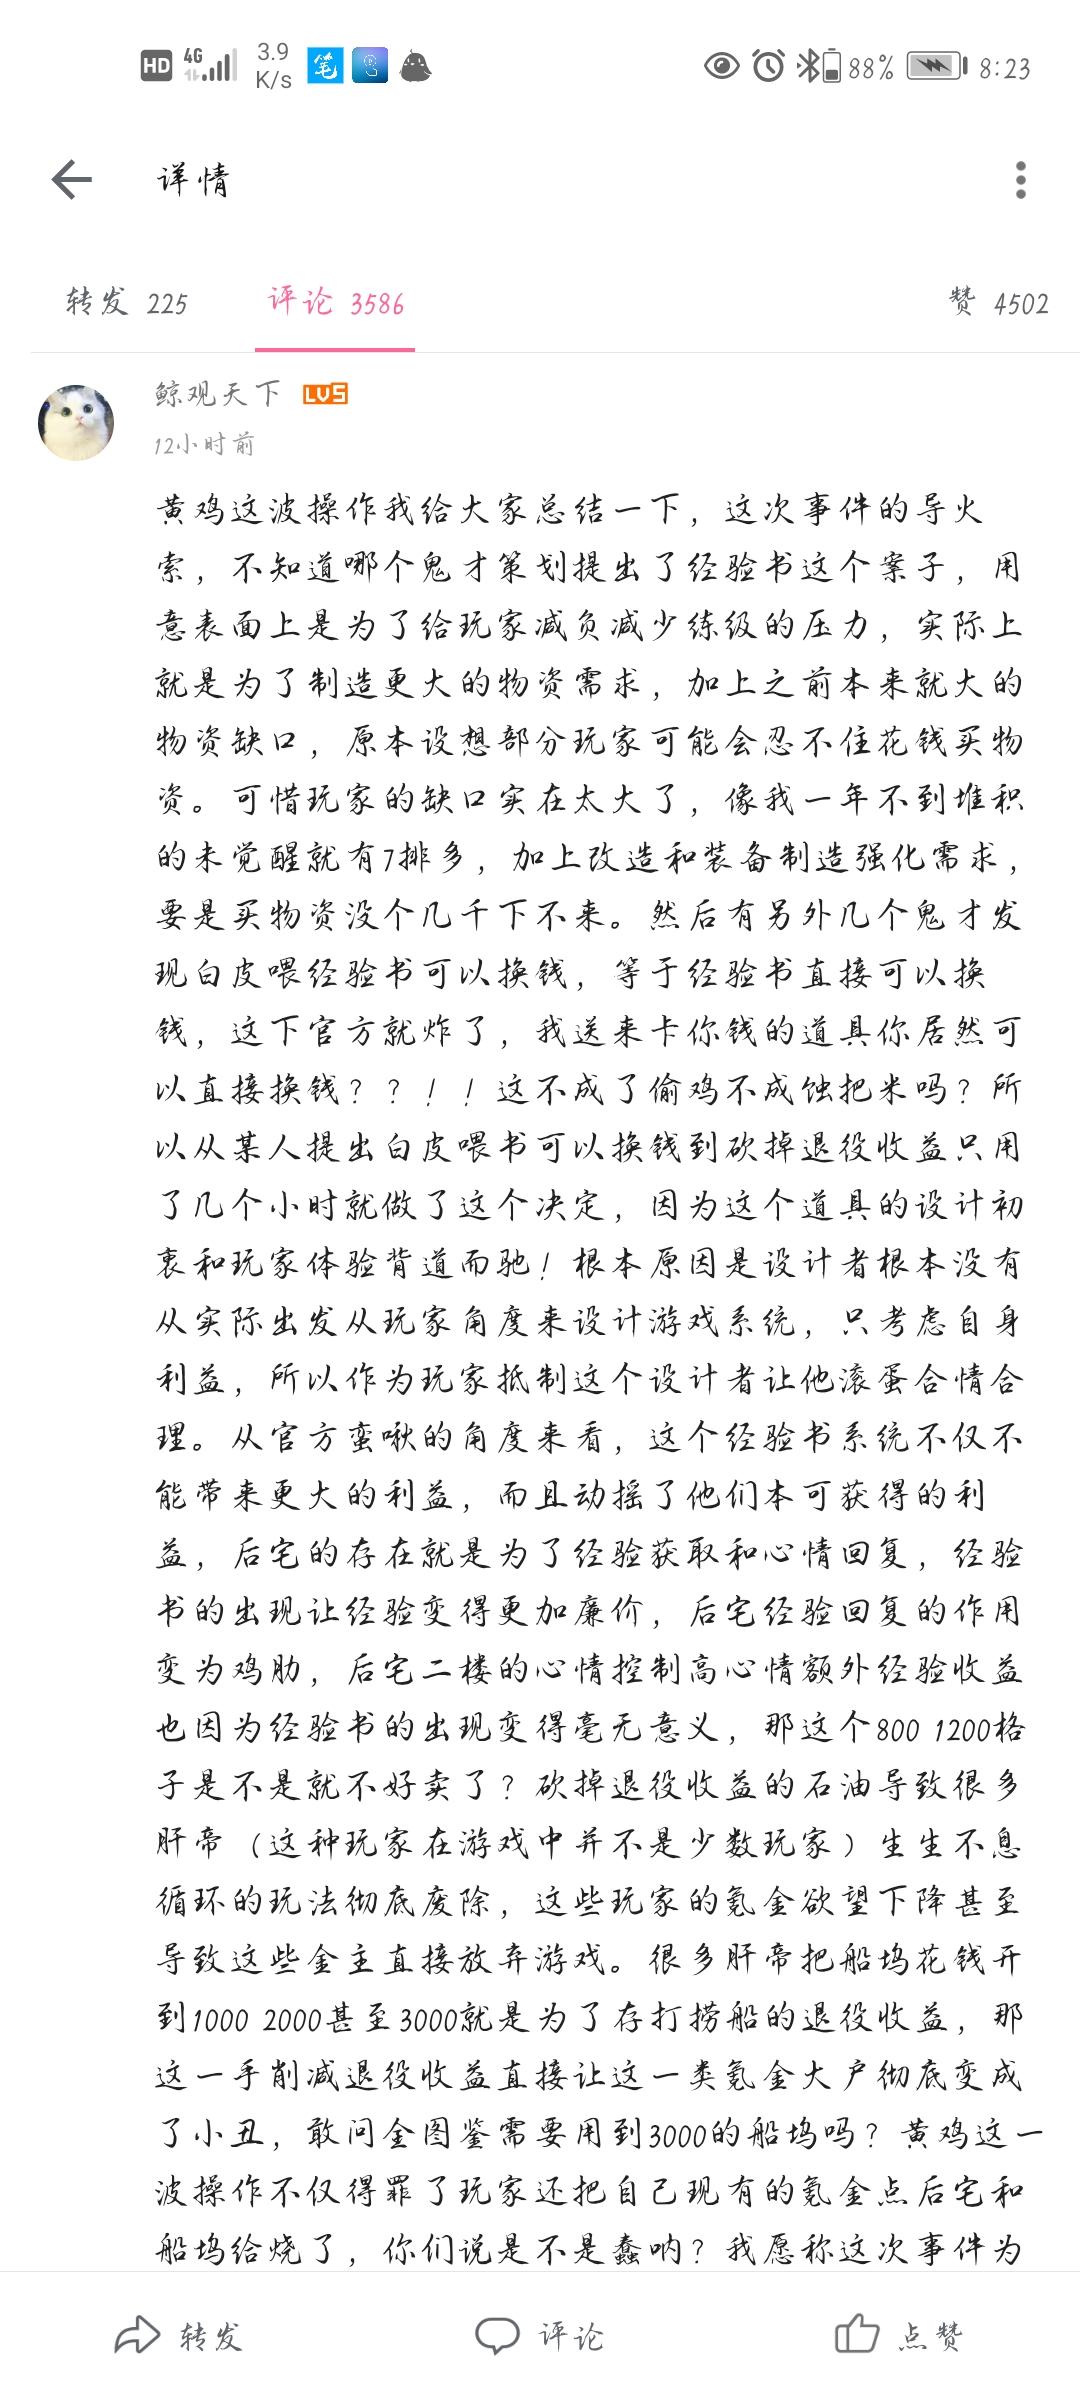 HD 4G 3.9 K/s 笔 88% 8:23
详情
转发 225 评论 3586 赞 4502
鲸观天下 LV5
12小时前
黄鸡这波操作我给大家总结一下，这次事件的导火
索，不知道哪个鬼才策划提出了经验书这个案子，用
意表面上是为了给玩家减负减少练级的压力，实际上
就是为了制造更大的物资需求，加上之前本来就大的
物资缺口，原本设想部分玩家可能会忍不住花钱买物
资。可惜玩家的缺口实在太大了，像我一年不到堆积
的未觉醒就有7排多，加上改造和装备制造强化需求，
要是买物资没个几千下不来。然后有另外几个鬼才发
现白皮喂经验书可以换钱，等于经验书直接可以换
钱，这下官方就炸了，我送来卡你钱的道具你居然可
以直接换钱？？！！这不成了偷鸡不成蚀把米吗？所
以从某人提出白皮喂书可以换钱到砍掉退役收益只用
了几个小时就做了这个决定，因为这个道具的设计初
衷和玩家体验背道而驰！根本原因是设计者根本没有
从实际出发从玩家角度来设计游戏系统，只考虑自身
利益，所以作为玩家抵制这个设计者让他滚蛋合情合
理。从官方蛮啾的角度来看，这个经验书系统不仅不
能带来更大的利益，而且动摇了他们本可获得的利
益，后宅的存在就是为了经验获取和心情回复，经验
书的出现让经验变得更加廉价，后宅经验回复的作用
变为鸡肋，后宅二楼的心情控制高心情额外经验收益
也因为经验书的出现变得毫无意义，那这个800 1200格
子是不是就不好卖了？砍掉退役收益的石油导致很多
肝帝（这种玩家在游戏中并不是少数玩家）生生不息
循环的玩法彻底废除，这些玩家的氪金欲望下降甚至
导致这些金主直接放弃游戏。很多肝帝把船坞花钱开
到1000 2000甚至3000就是为了存打捞船的退役收益，那
这一手削减退役收益直接让这一类氪金大户彻底变成
了小丑，敢问全图鉴需要用到3000的船坞吗？黄鸡这一
波操作不仅得罪了玩家还把自己现有的氪金点后宅和
船坞给烧了，你们说是不是蠢呐？我愿称这次事件为
转发 评论 点赞